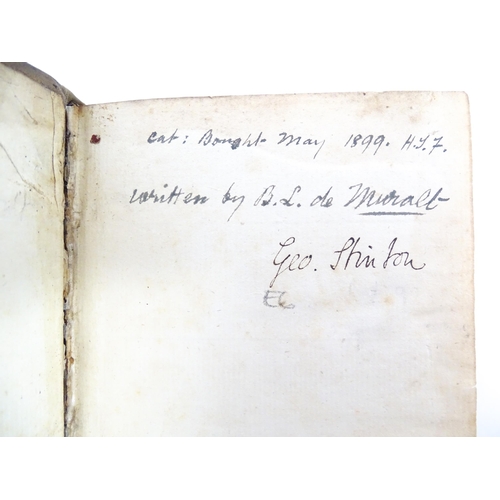 cat: Bought May 1899. H.S.F.
written by B.L. de Muralt
Geo. Stinton
E6